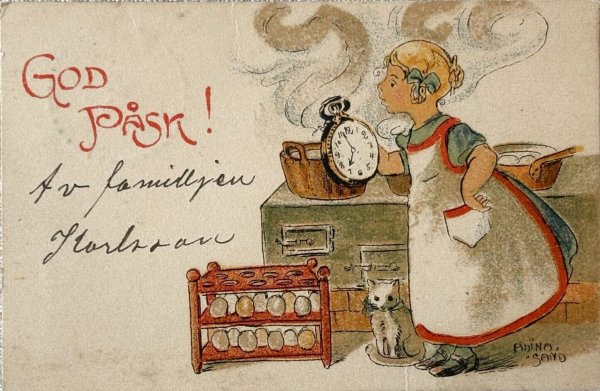 GOD
PÅSK!
Av familjen
Karlsson
ADINA
SAND